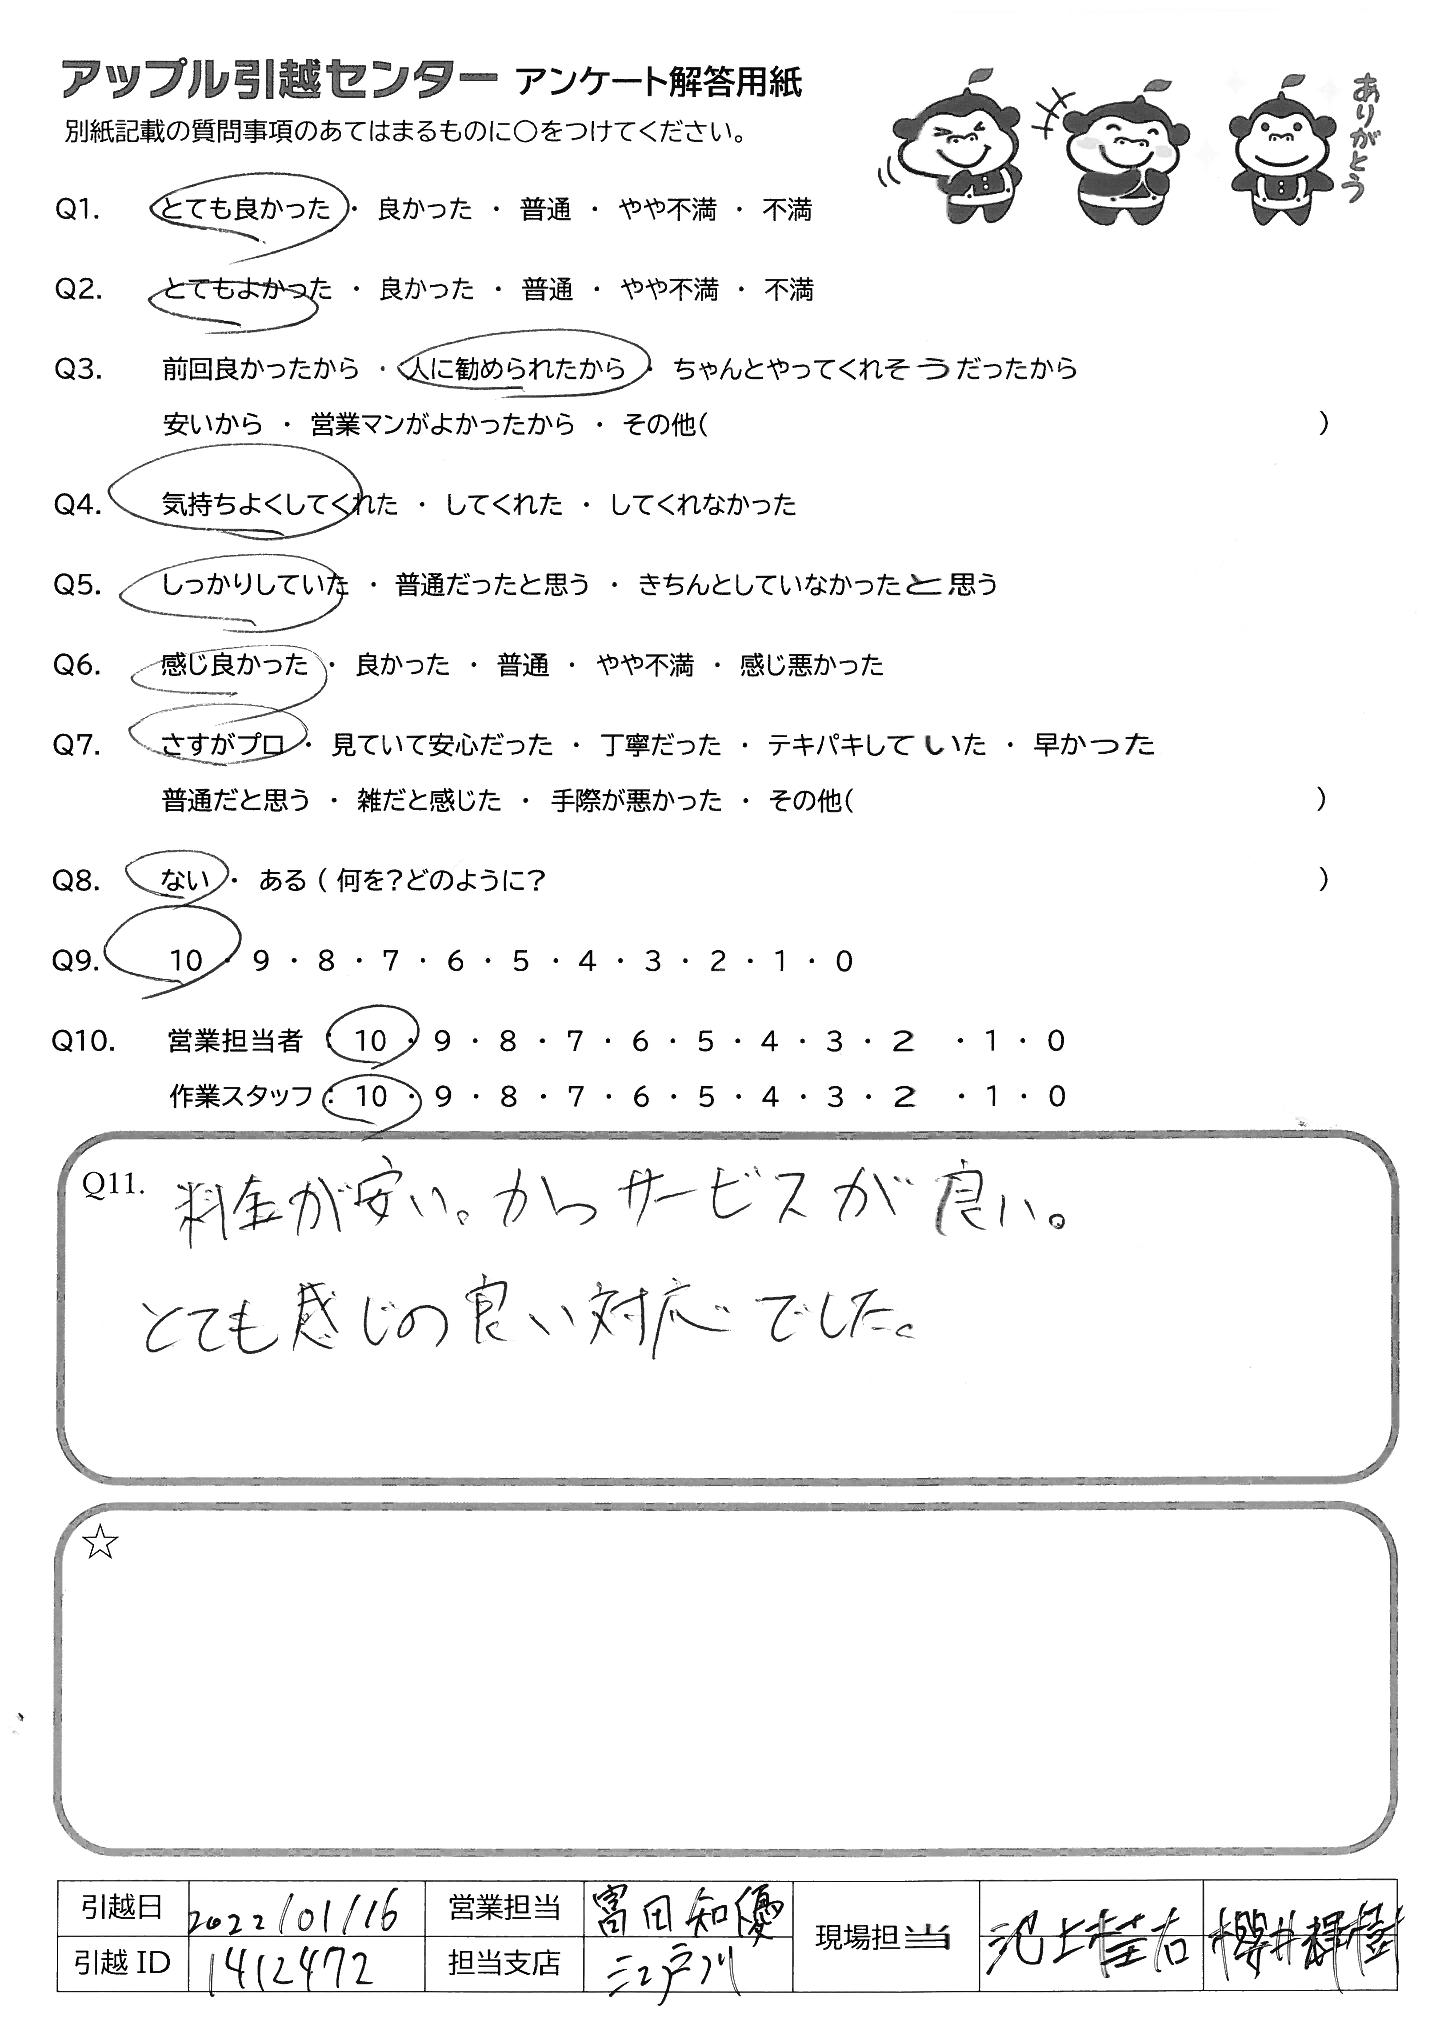 アップル引越センター アンケート解答用紙
別紙記載の質問事項のあてはまるものに〇をつけてください。
ありがとう
Q1. とても良かった ・ 良かった ・ 普通 ・ やや不満 ・ 不満
Q2. とてもよかった ・ 良かった ・ 普通 ・ やや不満 ・ 不満
Q3. 前回良かったから ・ 人に勧められたから ・ ちゃんとやってくれそうだったから
安いから ・ 営業マンがよかったから ・ その他( )
Q4. 気持ちよくしてくれた ・ してくれた ・ してくれなかった
Q5. しっかりしていた ・ 普通だったと思う ・ きちんとしていなかったと思う
Q6. 感じ良かった ・ 良かった ・ 普通 ・ やや不満 ・ 感じ悪かった
Q7. さすがプロ ・ 見ていて安心だった ・ 丁寧だった ・ テキパキしていた ・ 早かった
普通だと思う ・ 雑だと感じた ・ 手際が悪かった ・ その他( )
Q8. ない ・ ある ( 何を?どのように? )
Q9. 10 ・ 9 ・ 8 ・ 7 ・ 6 ・ 5 ・ 4 ・ 3 ・ 2 ・ 1 ・ 0
Q10. 営業担当者 : 10 ・ 9 ・ 8 ・ 7 ・ 6 ・ 5 ・ 4 ・ 3 ・ 2 ・ 1 ・ 0
作業スタッフ : 10 ・ 9 ・ 8 ・ 7 ・ 6 ・ 5 ・ 4 ・ 3 ・ 2 ・ 1 ・ 0
Q11. 料金が安い。かつサービスが良い。
とても感じの良い対応でした。
☆
引越日 2022/01/16 営業担当 富田知優 現場担当 池上桂右 櫻井輝樹
引越ID 1412472 担当支店 江戸川